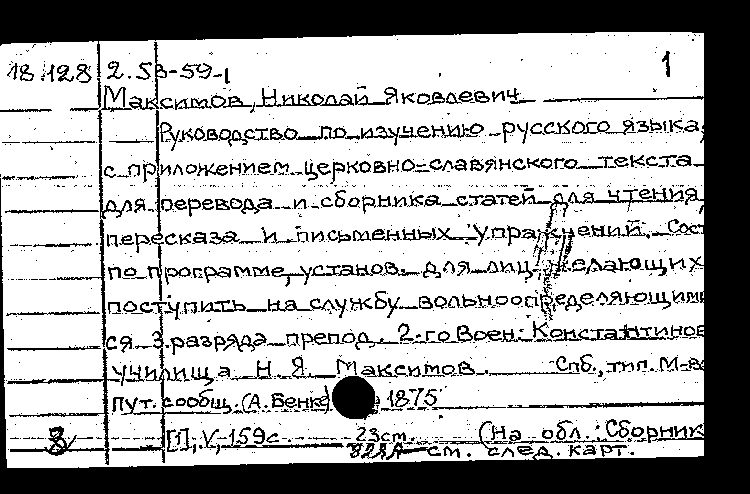 18.128 2.53-59-1 1
Максимов, Николай Яковлевич
Руководство по изучению русского языка,
с приложением церковно-славянского текста
для перевода и сборника статей для чтения,
пересказа и письменных упражнений. Сост
по программе, установ. для лиц желающих
поступить на службу вольноопределяющими
ся 3 разряда препод. 2-го Воен. Константинов
училища Н. Я. Максимов. Спб., тип. М-ва
пут. сообщ. (А. Бенке), 1875
[I], V, 159с. 23см. (На обл.: Сборник
см. след. карт.